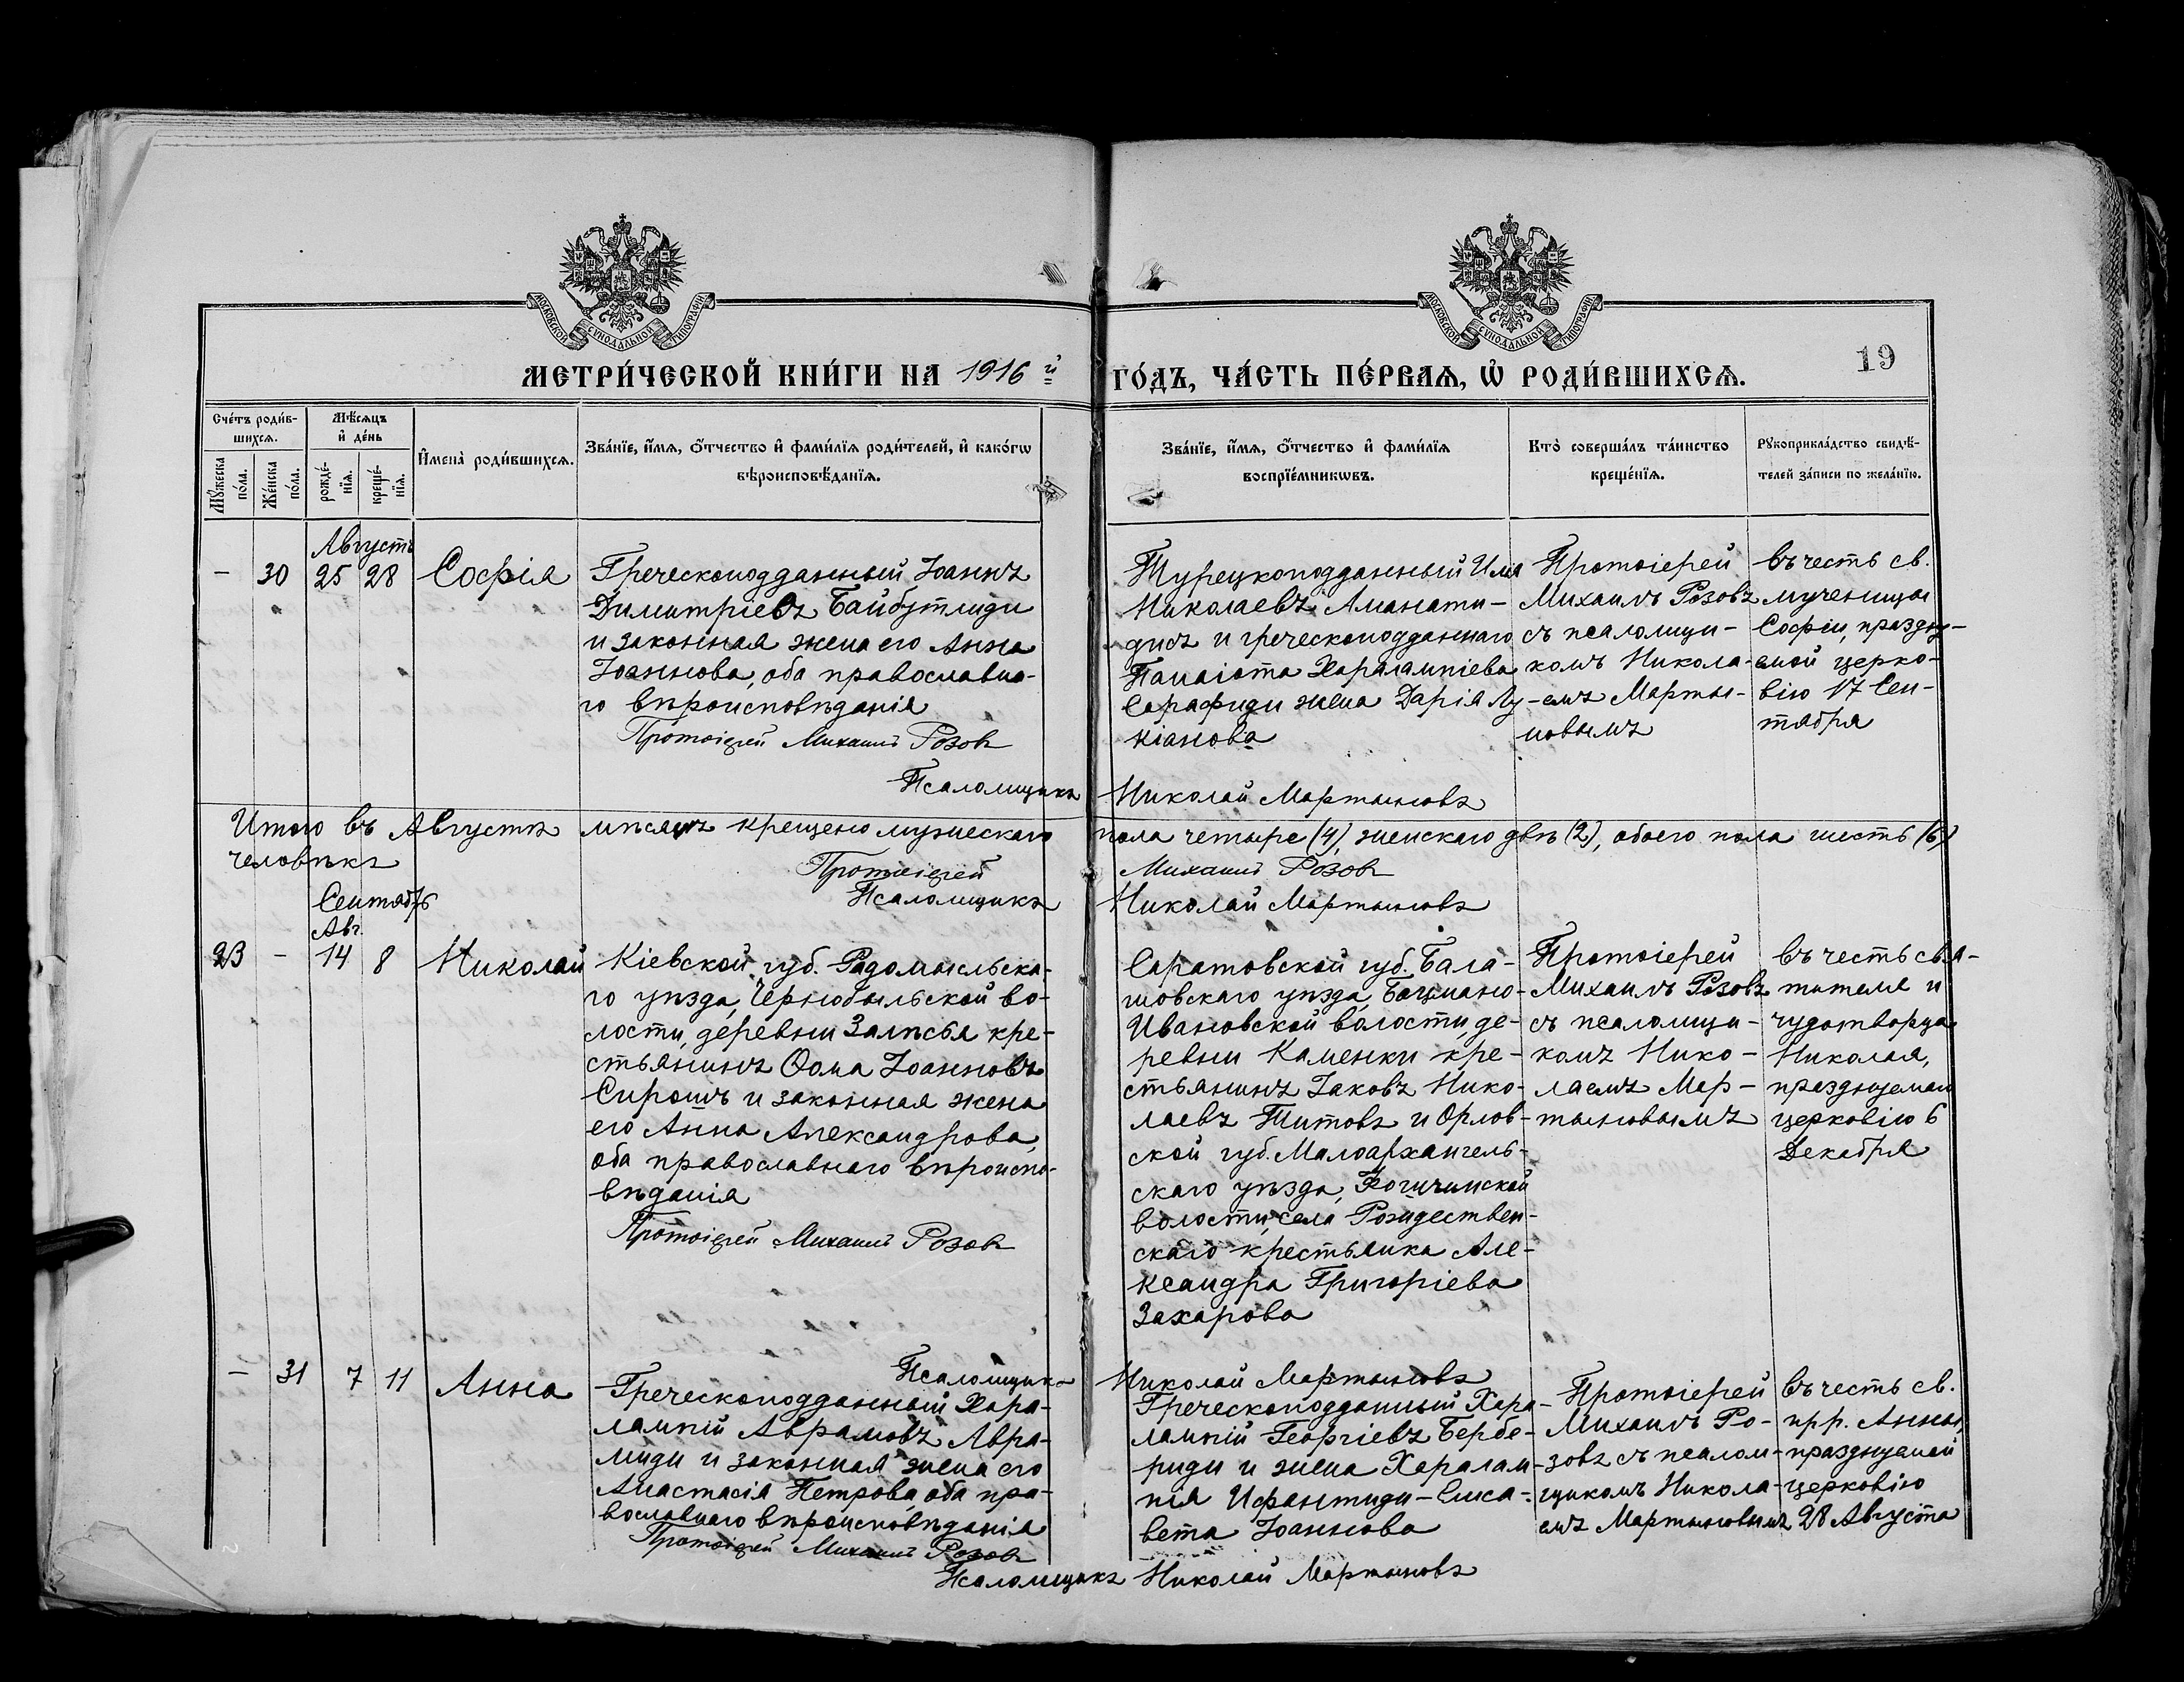 МОСКОВСКОЙ СѴНОДАЛЬНОЙ ТИПОГРАФІИ
МОСКОВСКОЙ СѴНОДАЛЬНОЙ ТИПОГРАФІИ
МЕТРИ́ЧЕСКОЙ КНИ́ГИ НА 1916 й ГО́ДЪ, ЧА́СТЬ ПЕ́РВАѦ, Ѡ҆ РОДИ́ВШИХСѦ.
19
Сче́тъ роди́в-
шихсѧ.
Мѣ́сѧцъ
и҆ де́нь
Мꙋ́жеска
по́ла.
Же́нска
по́ла.
рожде́-
нїѧ.
креще́-
нїѧ.
И҆мена̀ роди́вшихсѧ.
Зва́нїе, и҆́мѧ, ѻ҆́тчество и҆ фами́лїѧ роди́телей, и҆ како́гѡ
вѣроисповѣ́данїѧ.
Зва́нїе, и҆́мѧ, ѻ҆́тчество и҆ фами́лїѧ
воспрїе́мникѡвъ.
Кто̀ соверша́лъ та́инство
креще́нїѧ.
Рꙋкоприкла́дство свидѣ́-
телей за́писи по жела́нїю.
Августъ
– 30 25 28 Софія
Греческоподданный Іоаннъ
Димитріевъ Байбутлиди
и законная жена его Анна
Іоаннова, оба православна-
го вѣроисповѣданія
Протоіерей Михаилъ Розовъ
Турецкоподданный Илія
Николаевъ Аманати-
дисъ и греческоподданнаго
Панаіота Харалампіева
Серафиди жена Дарія Лу-
кіанова
Протоіерей
Михаилъ Розовъ
съ псаломщи-
комъ Никола-
емъ Марты-
новымъ
въ честь св.
мученицы
Софіи, праздну-
емой церко-
вію 17 Сен-
тября
Псаломщикъ Николай Мартыновъ
Итого въ Августѣ мѣсяцѣ крещено мужескаго пола четыре (4), женскаго двѣ (2), обоего пола шесть (6)
человѣкъ
Протоіерей Михаилъ Розовъ
Псаломщикъ Николай Мартыновъ
Сентябрь
Авг.
23 – 14 8 Николай
Кіевской губ. Радомысльска-
го уѣзда, Чернобыльской во-
лости, деревни Залѣсья кре-
стьянинъ Ѳома Іоанновъ
Сирошъ и законная жена
его Анна Александрова,
оба православнаго вѣроиспо-
вѣданія
Протоіерей Михаилъ Розовъ
Саратовской губ. Бала-
шовскаго уѣзда,
Ивановской волости, де-
ревни Каменки кре-
стьянинъ Іаковъ Нико-
лаевъ Титовъ и Орлов-
ской губ. Малоархангель-
скаго уѣзда,
волости, села Рождествен-
скаго крестьянка Але-
ксандра Григоріева
Захарова
Протоіерей
Михаилъ Розовъ
съ псаломщи-
комъ Нико-
лаемъ Мар-
тыновымъ
въ честь свя-
тителя и
чудотворца
Николая,
празднуемаго
церковію 6
Декабря
Псаломщикъ Николай Мартыновъ
– 31 7 11 Анна
Греческоподданный Хара-
лампій Аврамовъ Авра-
миди и законная жена его
Анастасія Петрова, оба пра-
вославнаго вѣроисповѣданія
Протоіерей Михаилъ Розовъ
Греческоподданный Хара-
лампій Георгіевъ Бербе-
риди и жена Харалам-
пія Исфантиди – Елиса-
вета Іоаннова
Протоіерей
Михаилъ Ро-
зовъ съ псалом-
щикомъ Никола-
емъ Мартыновымъ
въ честь св.
прр. Анны,
празднуемой
церковію
28 Августа
Псаломщикъ Николай Мартыновъ